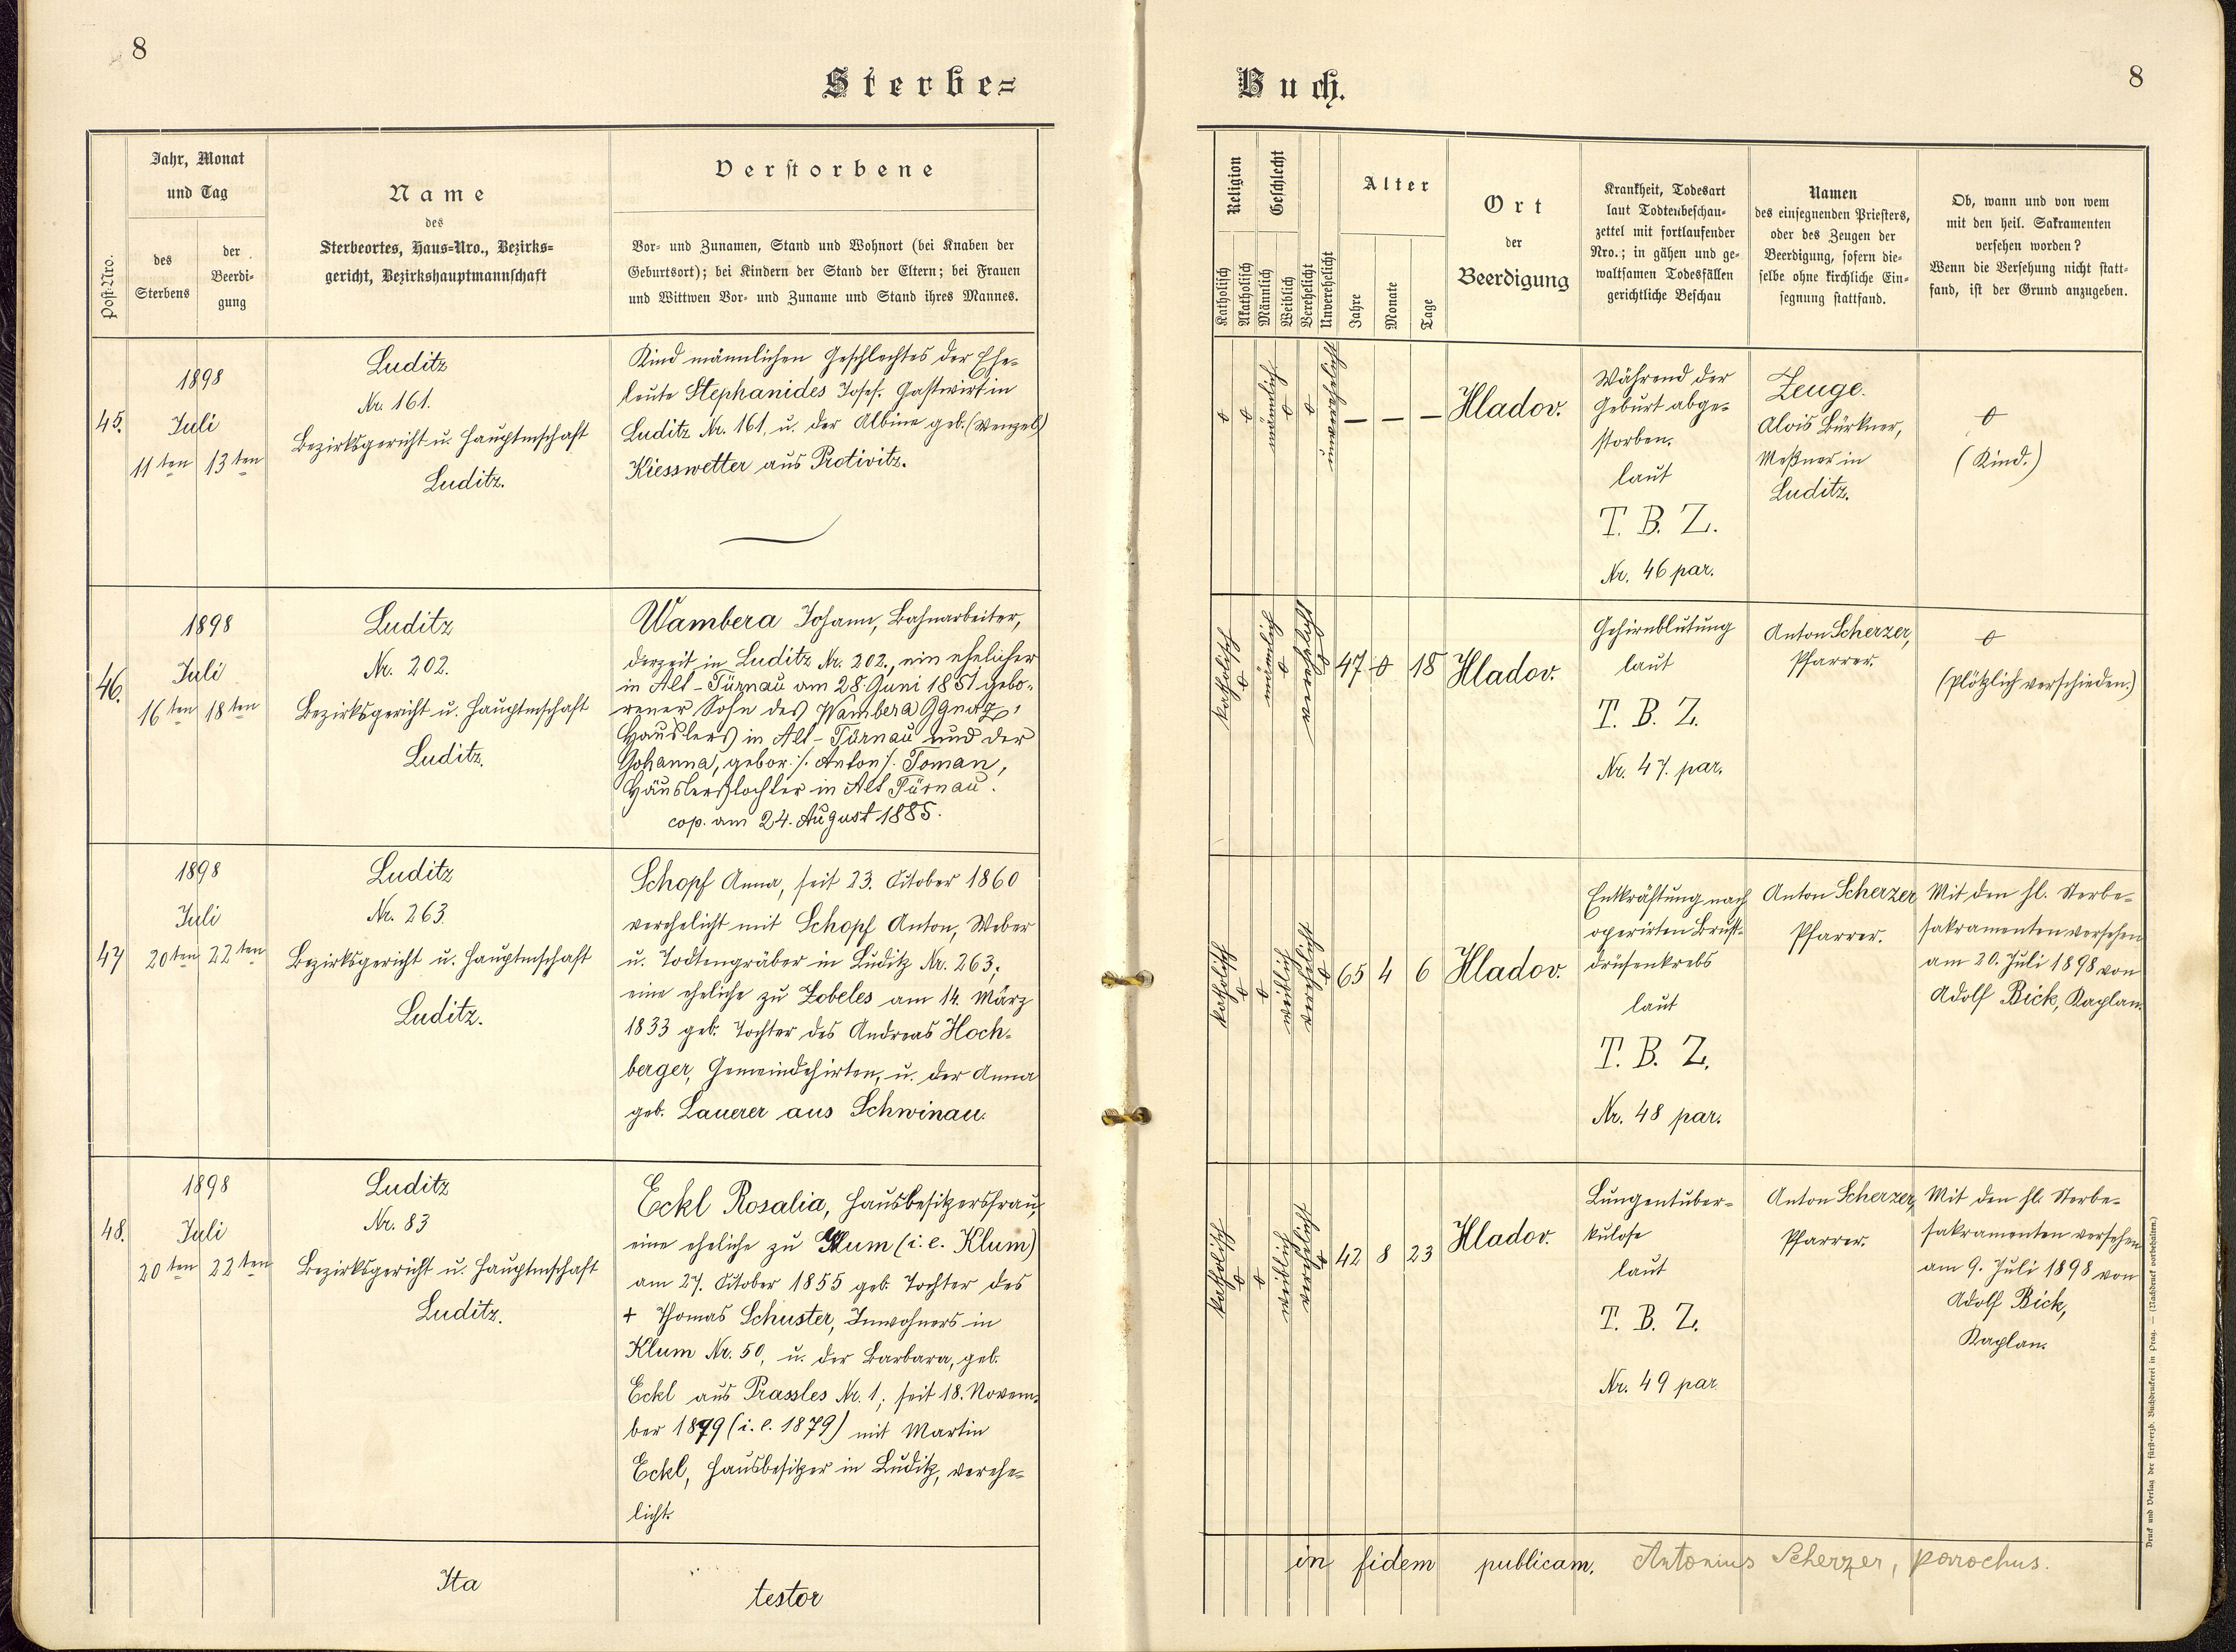 8
Sterbe=
Post-Nro.
Jahr, Monat
und Tag
des
Sterbens
der
Beerdi-
gung
Name
des
Sterbeortes, Haus-Nro., Bezirks-
gericht, Bezirkshauptmannschaft
Verstorbene
Vor- und Zunamen, Stand und Wohnort (bei Knaben der
Geburtsort); bei Kindern der Stand der Eltern; bei Frauen
und Wittwen Vor- und Zuname und Stand ihres Mannes.
45.
1898
Juli
11ten 13ten
Luditz
Nr. 161.
Bezirksgericht u. Hauptmschaft
Luditz.
Kind männlichen Geschlechtes der Ehe-
leute Stephanides Josef. Gastwirt in
Luditz Nr. 161, u. der Albine geb. (Wenzel)
Kiesswetter aus Protivitz.
46.
1898
Juli
16ten 18ten
Luditz
Nr. 202.
Bezirksgericht u. Hauptmschaft
Luditz.
Wambera Johann, Bahnarbeiter,
derzeit in Luditz Nr. 202., ein ehelicher
in Alt-Türnau am 28. Juni 1851 gebo-
rener Sohn des Wambera Ignatz,
Häuslers in Alt-Türnau und der
Johanna, gebor. /. Anton /. Toman,
Häuslerstochter in Alt Türnau.
cop. am 24. August 1885.
47
1898
Juli
20ten 22ten
Luditz
Nr. 263
Bezirksgericht u. Hauptmschaft
Luditz.
Schopf Anna, seit 23. Oktober 1860
verehelicht mit Schopf Anton, Weber
u. Todtengräber in Luditz Nr. 263;
eine eheliche zu Zobeles am 14. März
1833 geb. Tochter des Andreas Hoch-
berger, Gemeindehirten, u. der Anna
geb. Lauerer aus Schwinau.
48.
1898
Juli
20ten 22ten
Luditz
Nr. 83
Bezirksgericht u. Hauptmschaft
Luditz.
Eckl Rosalia, Hausbesitzersfrau,
eine eheliche zu Klum (i. e. Klum)
am 27. Oktober 1855 geb. Tochter des
+ Thomas Schuster, Inwohners in
Klum Nr. 50, u. der Barbara, geb.
Eckl aus Prassles Nr. 1; seit 18. Novem-
ber 1879 (i. e. 1879) mit Martin
Eckl, Hausbesitzer in Luditz, verehe-
licht.
Ita
testor
Buch.
8
Religion
Katholisch
Akatholisch
Geschlecht
Männlich
Weiblich
Verehelicht
Unverehelicht
Alter
Jahre
Monate
Tage
Ort
der
Beerdigung
Krankheit, Todesart
laut Todtenbeschau-
zettel mit fortlaufender
Nro.; in gähen und ge-
waltsamen Todesfällen
gerichtliche Beschau
Namen
des einsegnenden Priesters,
oder des Zeugen der
Beerdigung, sofern die-
selbe ohne kirchliche Ein-
segnung stattfand.
Ob, wann und von wem
mit den heil. Sakramenten
versehen worden?
Wenn die Versehung nicht statt-
fand, ist der Grund anzugeben.
0 0 männlich 0 0 unverehelicht
— — —
Hladov.
Während der
Geburt abge-
storben.
laut
T. B. Z.
Nr. 46 par.
Zeuge.
Alois Bürkner,
Meßner in
Luditz.
0
(Kind.)
katholisch 0 männlich 0 verehelicht 0
47 0 18
Hladov.
Gehirnblutung
laut
T. B. Z.
Nr. 47. par.
Anton Scherzer,
Pfarrer.
0
(Plötzlich verschieden.)
katholisch 0 0 weiblich verehelicht 0
65 4 6
Hladov.
Entkräftung nach
operirten Brust-
drüsenkrebs
laut
T. B. Z.
Nr. 48 par.
Anton Scherzer
Pfarrer.
Mit den hl. Sterbe-
sakramenten versehen
am 20. Juli 1898 von
Adolf Bick, Kaplan.
katholisch 0 0 weiblich verehelicht 0
42 8 23
Hladov.
Lungentuber-
kulose
laut
T. B. Z.
Nr. 49 par
Anton Scherzer,
Pfarrer.
Mit den hl. Sterbe-
sakramenten versehen
am 9. Juli 1898 von
Adolf Bick,
Kaplan.
in fidem publicam. Antonius Scherzer, parochus.
Druck und Verlag der fürst-erzb. Buchdruckerei in Prag. — (Nachdruck vorbehalten.)